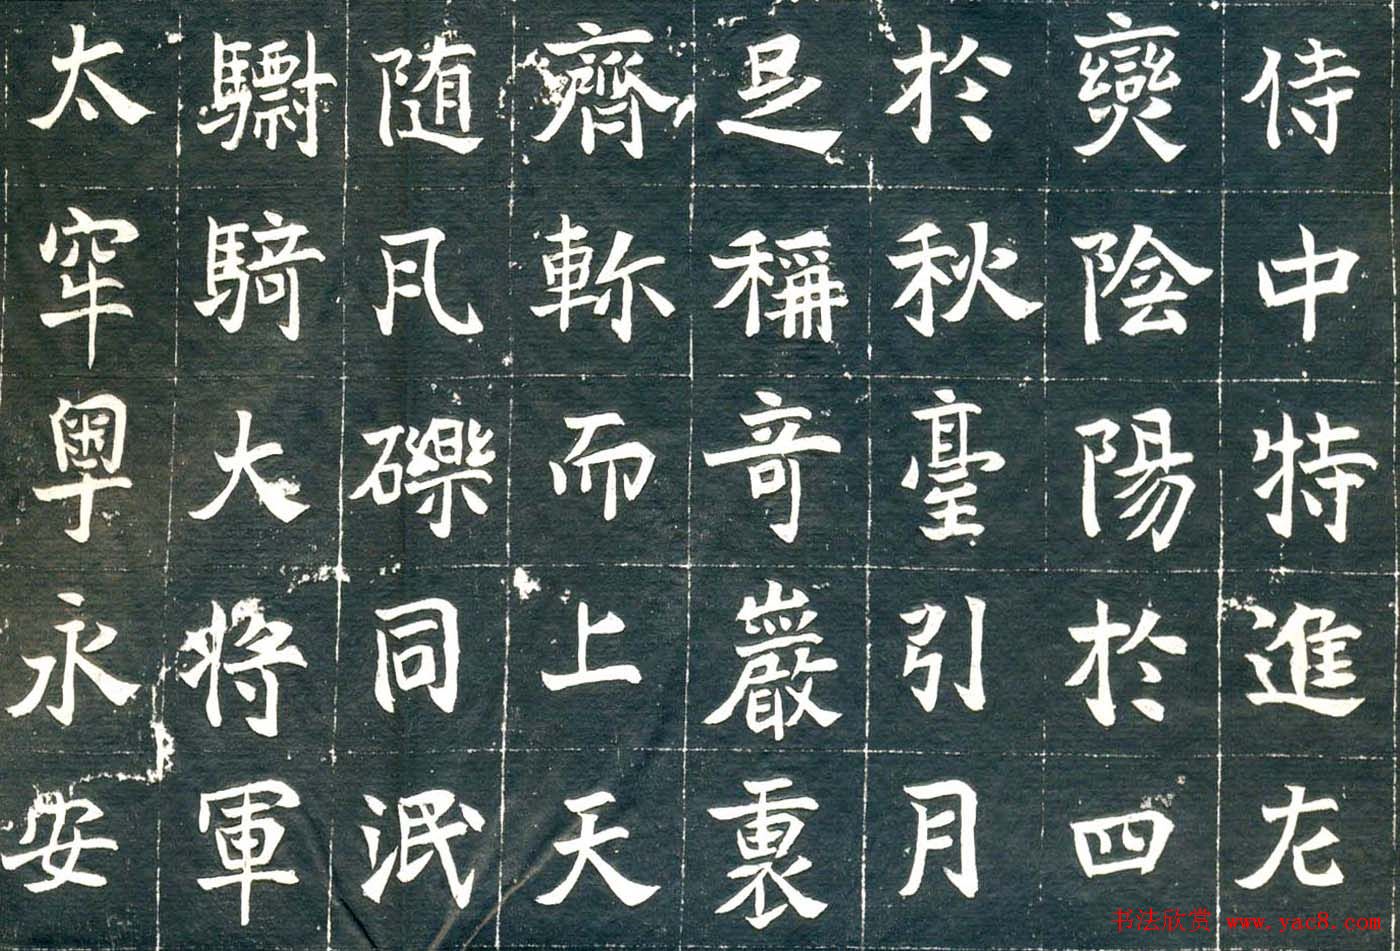 侍中特進
燮陰陽於四
於秋臺引月
是稱竒巖裏
齊軫而上天
随瓦礫同泯
驃騎大将軍
太宰粤永安
书法欣赏 www.yac8.com